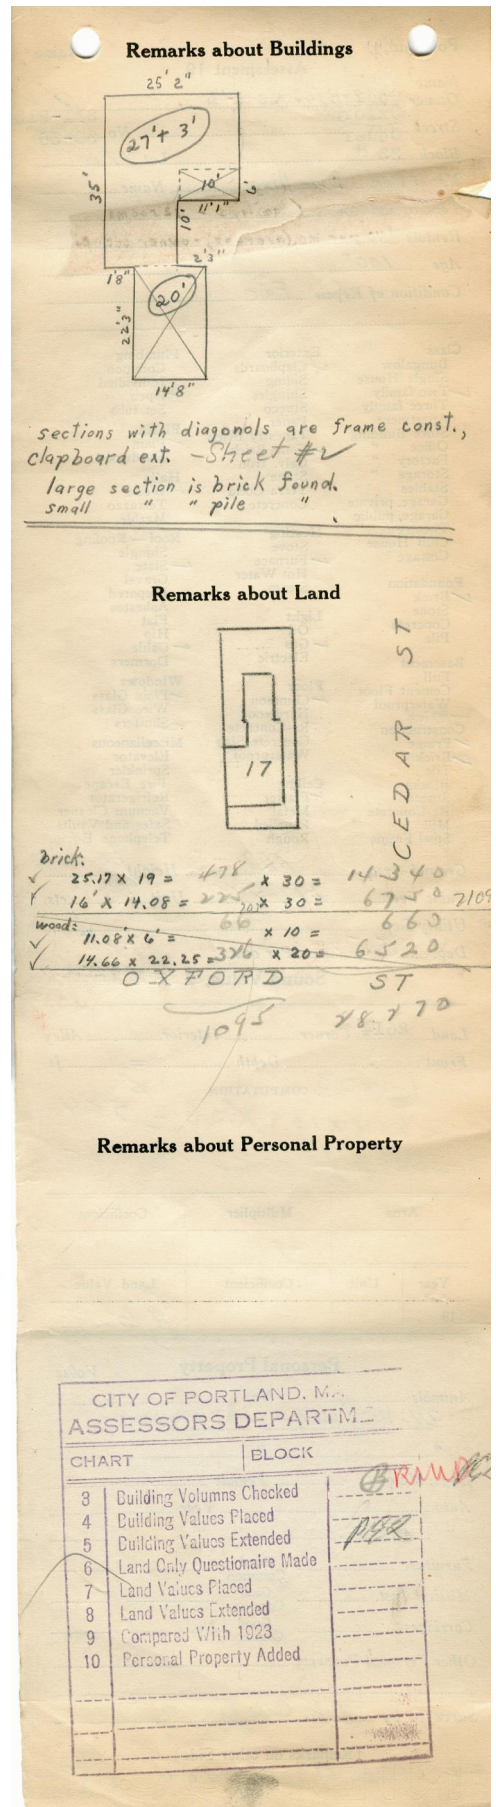 Remarks about Buildings
25' 2"
27' + 3'
35'
10'
6'
11' 1"
10'
2'3"
1'8"
20'
22'3"
14'8"
sections with diagonols are frame const.,
clapboard ext. - Sheet #2
large section is brick found.
small " " pile "
Remarks about Land
CEDAR ST
17
brick:
25.17 x 19 = 478 x 30 = 14340
16' x 14.08 = 225 x 30 = 6750 2109
wood:
11.08' x 6' = 66 x 10 = 660
14.66 x 22.25 = 326 x 20 = 6520
OXFORD ST
1095 28270
Remarks about Personal Property
CITY OF PORTLAND, MA
ASSESSORS DEPARTME
CHART BLOCK
3 Building Volumns Checked
4 Building Values Placed
5 Building Values Extended
6 Land Only Questionaire Made
7 Land Values Placed
8 Land Values Extended
9 Compared With 1923
10 Personal Property Added